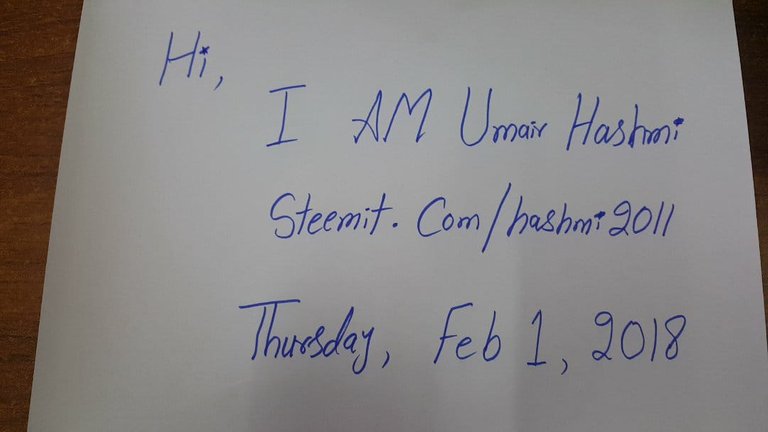 Hi,
I AM Umair Hashmi
Steemit. Com/hashmi2011
Thursday, Feb 1, 2018